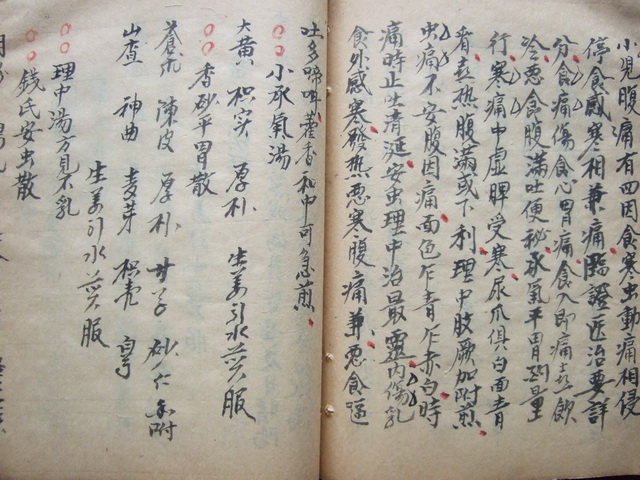 小児腹痛有四因食寒虫動痛相侵
停食感寒相兼痛臨證医治要詳
分食痛傷食心胃痛食入即痛喜飲
冷悪食腹滿吐便秘承氣平胃酌量
行寒痛中虚脾受寒尿爪俱白面青
看喜热腹滿或下利理中肢厥加附煎
虫痛不安腹因痛面色乍青乍赤白時
痛時止吐清涎安虫理中治最靈内傷乳
食外感寒發热悪寒腹痛兼悪食逼
吐多啼叫藿香和中可急煎
小承氣湯
大黄 枳实 厚朴 生姜引水煎服
香砂平胃散
蒼朮 陳皮 厚朴 甘草 砂仁 香附
山查 神曲 麦芽 枳壳 白芍
生姜引水煎服
理中湯方見不乳
錢氏安虫散